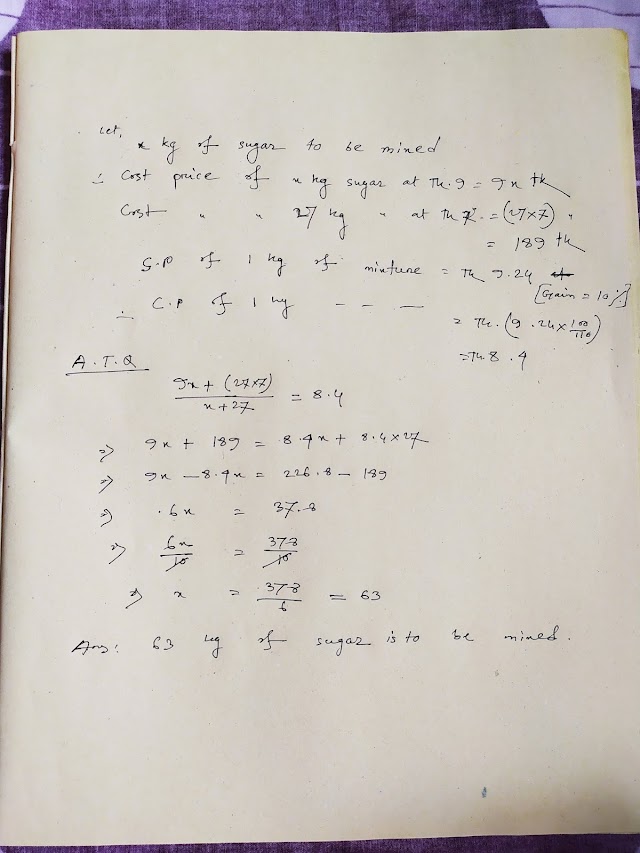 Let,
x kg of sugar to be mixed
∴ Cost price of x kg sugar at Tk. 9 = 9x tk
Cost " " 27 kg " at Tk 7. = (27×7) "
= 189 tk
S.P of 1 kg of mixture = Tk 9.24
[Gain = 10%]
∴ C.P of 1 kg - - - = Tk. (9.24 × 100/110)
= Tk 8.4
A.T.Q
9x + (27×7) / x+27 = 8.4
=> 9x + 189 = 8.4x + 8.4×27
=> 9x - 8.4x = 226.8 - 189
=> .6x = 37.8
=> 6x/10 = 378/10
=> x = 378/6 = 63
Ans: 63 kg of sugar is to be mixed.